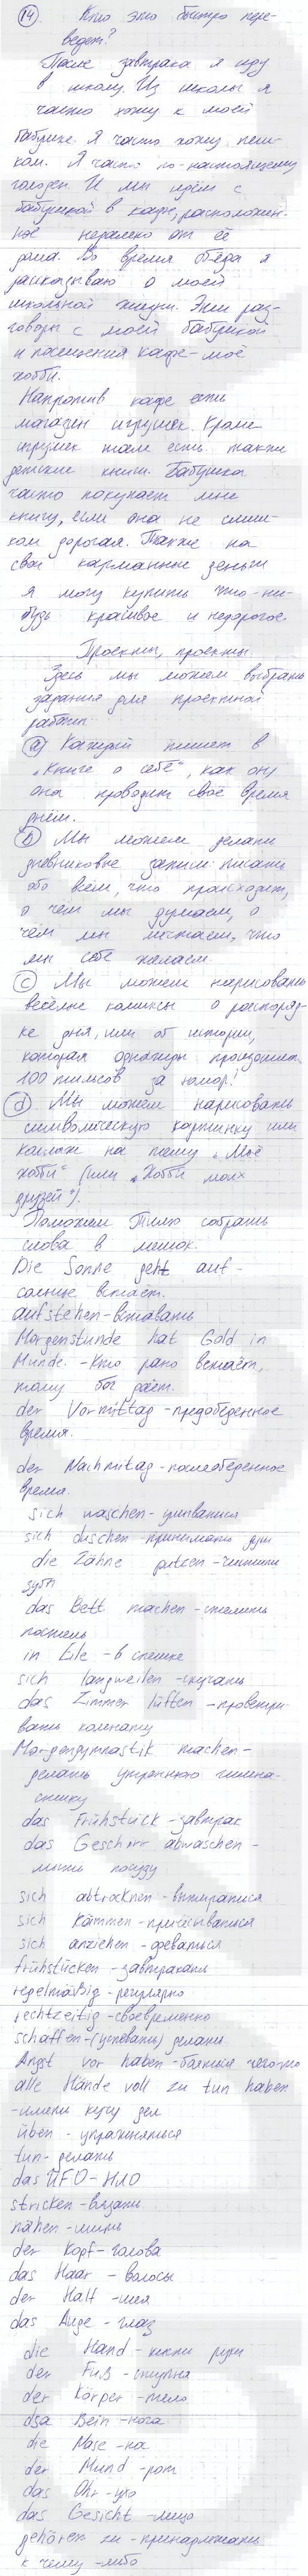 14) Кто это быстро пере-
ведет?
После завтрака я иду
в школу. Из школы я
часто хожу к моей
бабушке. Я часто хожу пеш-
ком. Я часто по-настоящему
голоден. И мы идём с
бабушкой в кафе, расположен-
ное недалеко от её
дома. Во время обеда я
рассказываю о моей
школьной жизни. Эти раз-
говоры с моей бабушкой
и посещения кафе - моё
хобби.
Напротив кафе есть
магазин игрушек. Кроме
игрушек там есть также
детские книги. Бабушка
часто покупает мне
книгу, если она не слиш-
ком дорогая. Также на
свои карманные деньги
я могу купить что-ни-
будь красивое и недорогое.
Проекты, проекты
Здесь мы можем выбрать
задания для проектной
работы
a) Каждый пишет в
„Книге о себе", как он/
она проводит своё время
днём.
b) Мы можем делать
дневниковые записи: писать
обо всём, что происходит,
о чем мы думаем, о
чём мы мечтаем, что
мы себе желаем.
c) Мы можем нарисовать
весёлые комиксы о распоряд-
ке дня, или об истории,
которая однажды произошла.
100 плюсов за юмор!
d) Мы можем нарисовать
символическую картинку или
коллаж на тему „Моё
хобби" (или „Хобби моих
друзей").
Поможем Тилю собрать
слова в мешок.
Die Sonne geht auf -
солнце встаёт.
aufstehen - вставать
Morgenstunde hat Gold in
Munde. - Кто рано встаёт,
тому бог даёт.
der Vormittag - предобеденное
время.
der Nachmitag - послеобеденное
время.
sich waschen - умываться
sich duschen - принимать душ
die Zähne putzen - чистить
зубы
das Bett machen - стелить
постель
in Eile - в спешке
sich langweilen - скучать
das Zimmer lüften - проветри-
вать комнату
Morgengymnastik machen -
делать утреннюю гимна-
стику
das Frühstück - завтрак
das Geschirr abwaschen -
мыть посуду
sich abtrocknen - вытираться
sich kämmen - причёсываться
sich anziehen - одеваться
frühstücken - завтракать
regelmäßig - регулярно
rechtzeitig - своевременно
schaffen - (успевать) делать
Angst vor haben - бояться чего-то
alle Hände voll zu tun haben
- иметь кучу дел
üben - упражняться
tun - делать
das UFO - НЛО
stricken - вязать
nähen - шить
der Kopf - голова
das Haar - волосы
der Half - шея
das Auge - глаз
die Hand - кисть руки
der Fuß - ступня
der Körper - тело
dsa Bein - нога
die Nase - но
der Mund - рот
das Ohr - ухо
das Gesicht - лицо
gehören zu - принадлежать
к чему-либо